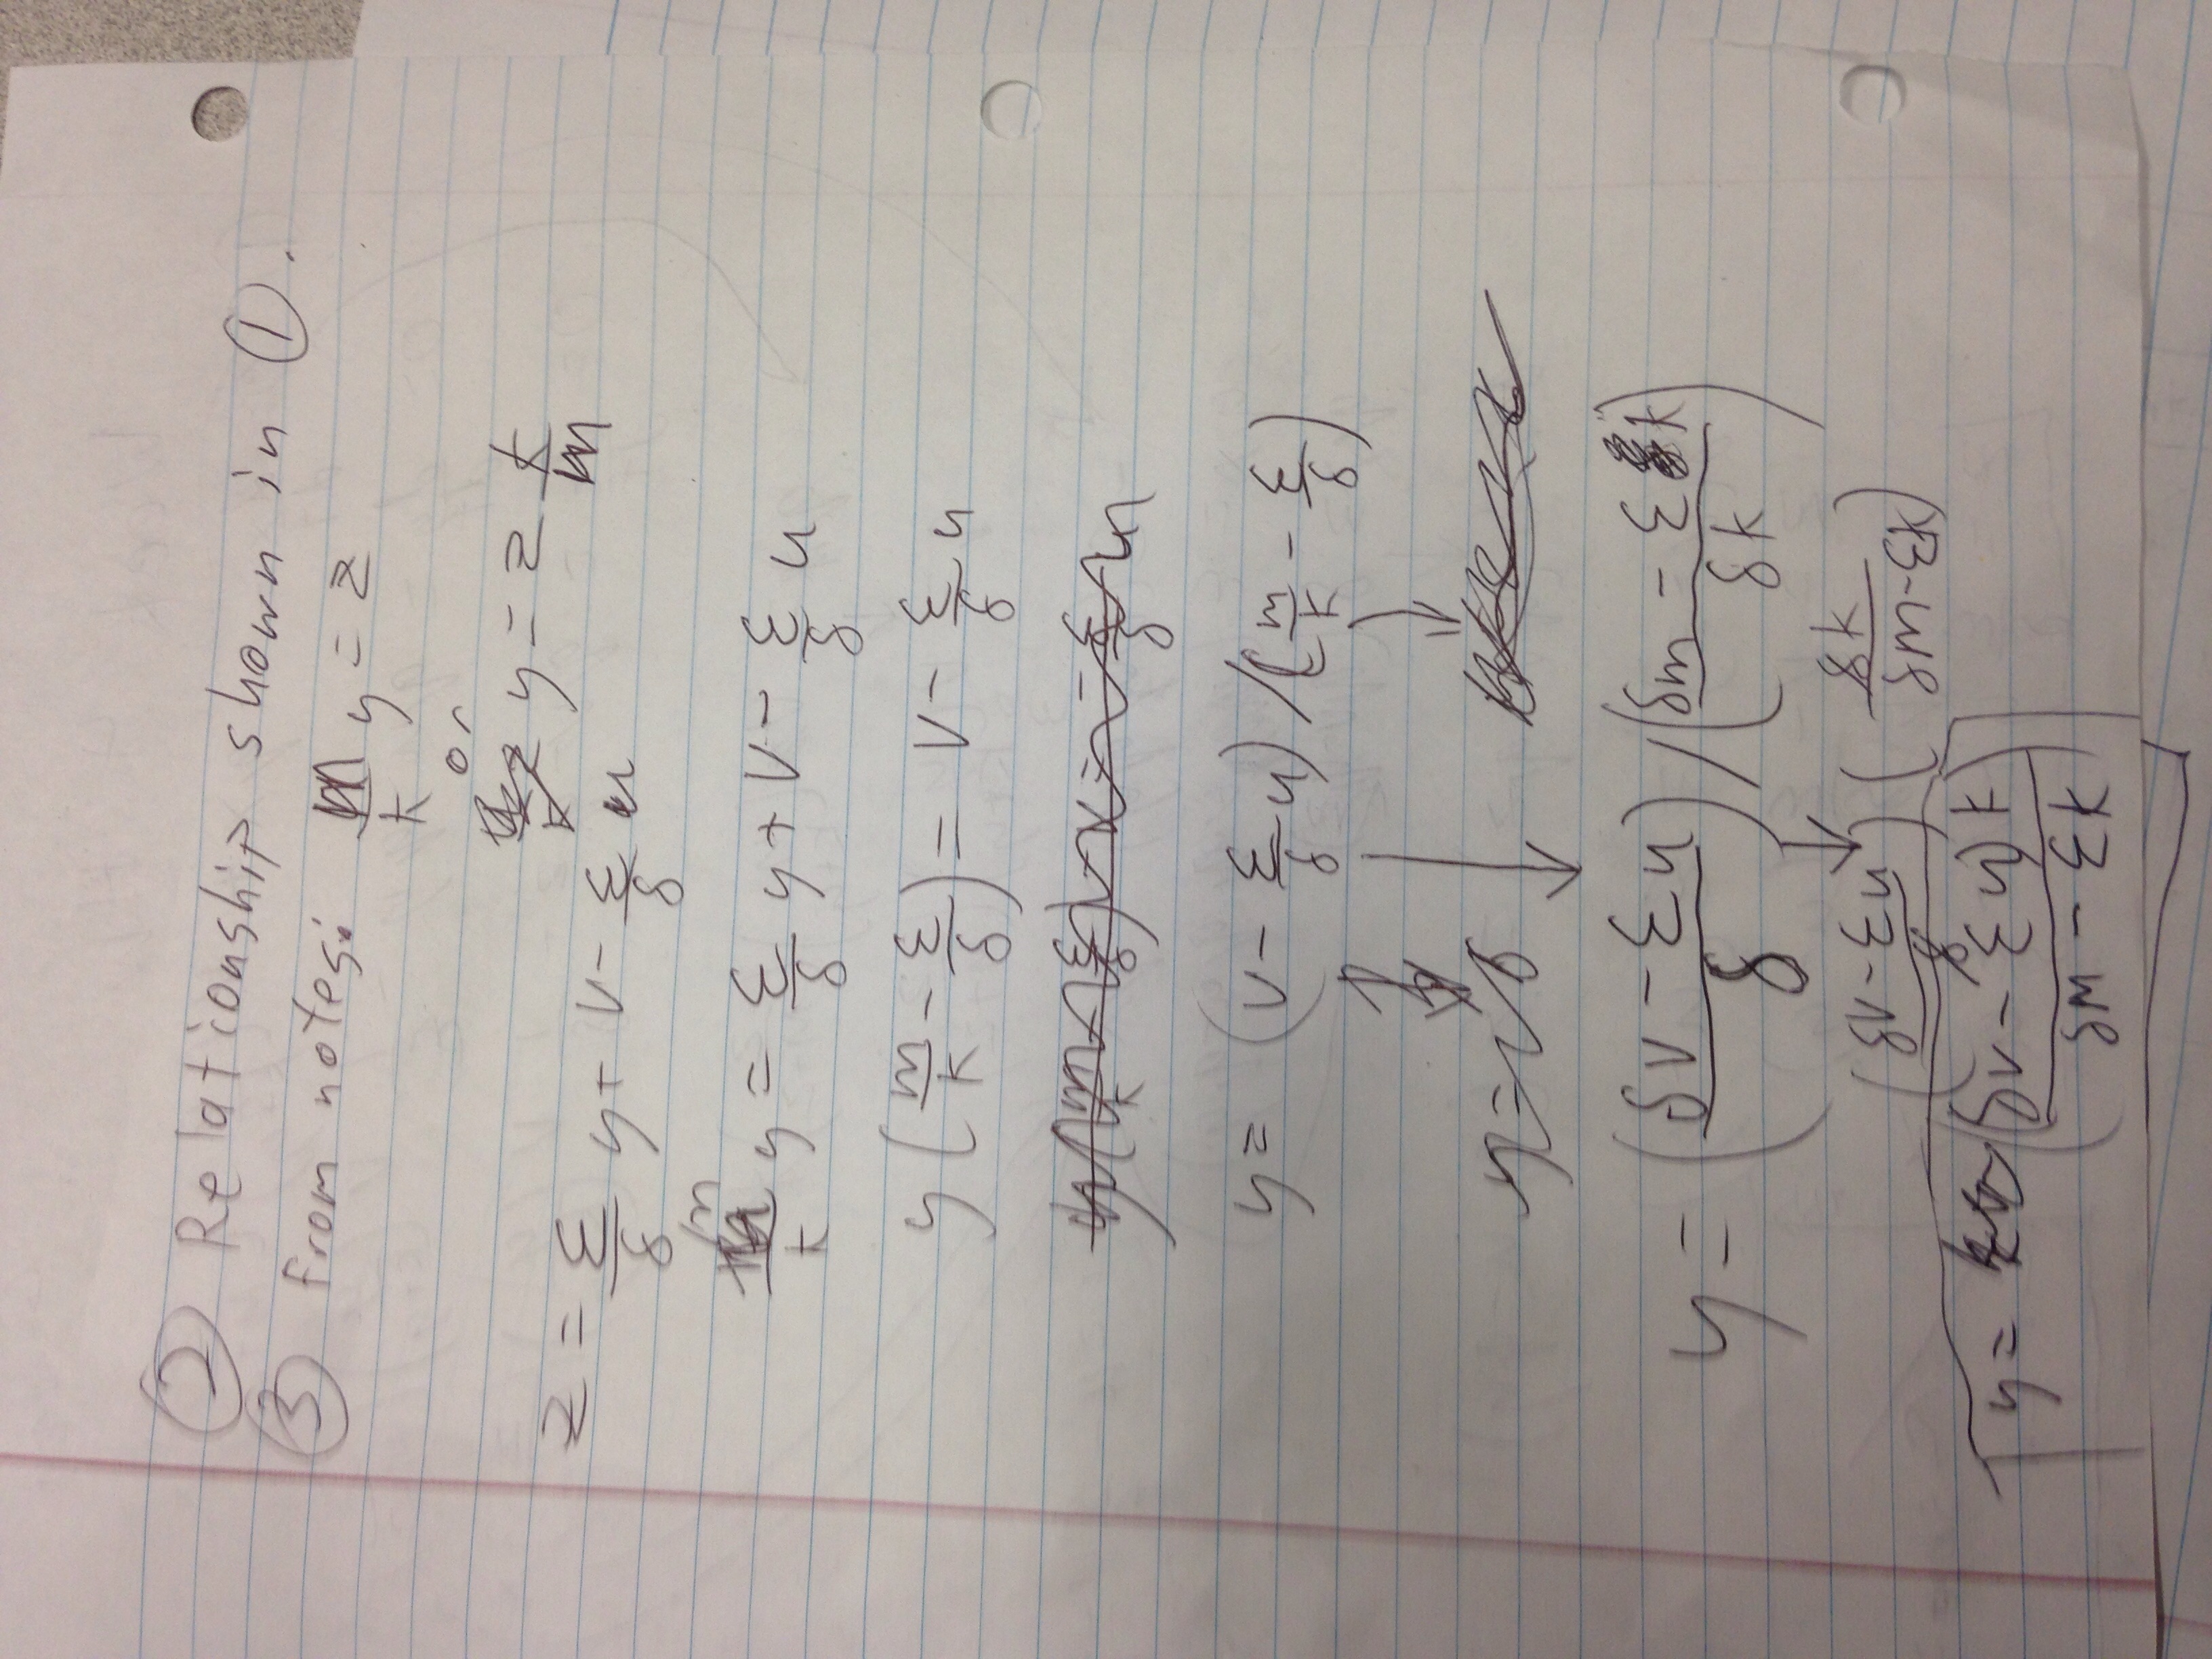 ② Relationship shown in ①.
③ from notes: m/k y = z
or
y = z k/m
z = ε/δ y + v - ε/δ u
m/k y = ε/δ y + v - ε/δ u
y(m/k - ε/δ) = v - ε/δ u
y = (v - ε/δ u) / (m/k - ε/δ)
y = (δv - εu / δ) / (δm - εk / δk)
(δv - εu / δ) (δk / δm - εk)
y = ((δv - εu)k / δm - εk)